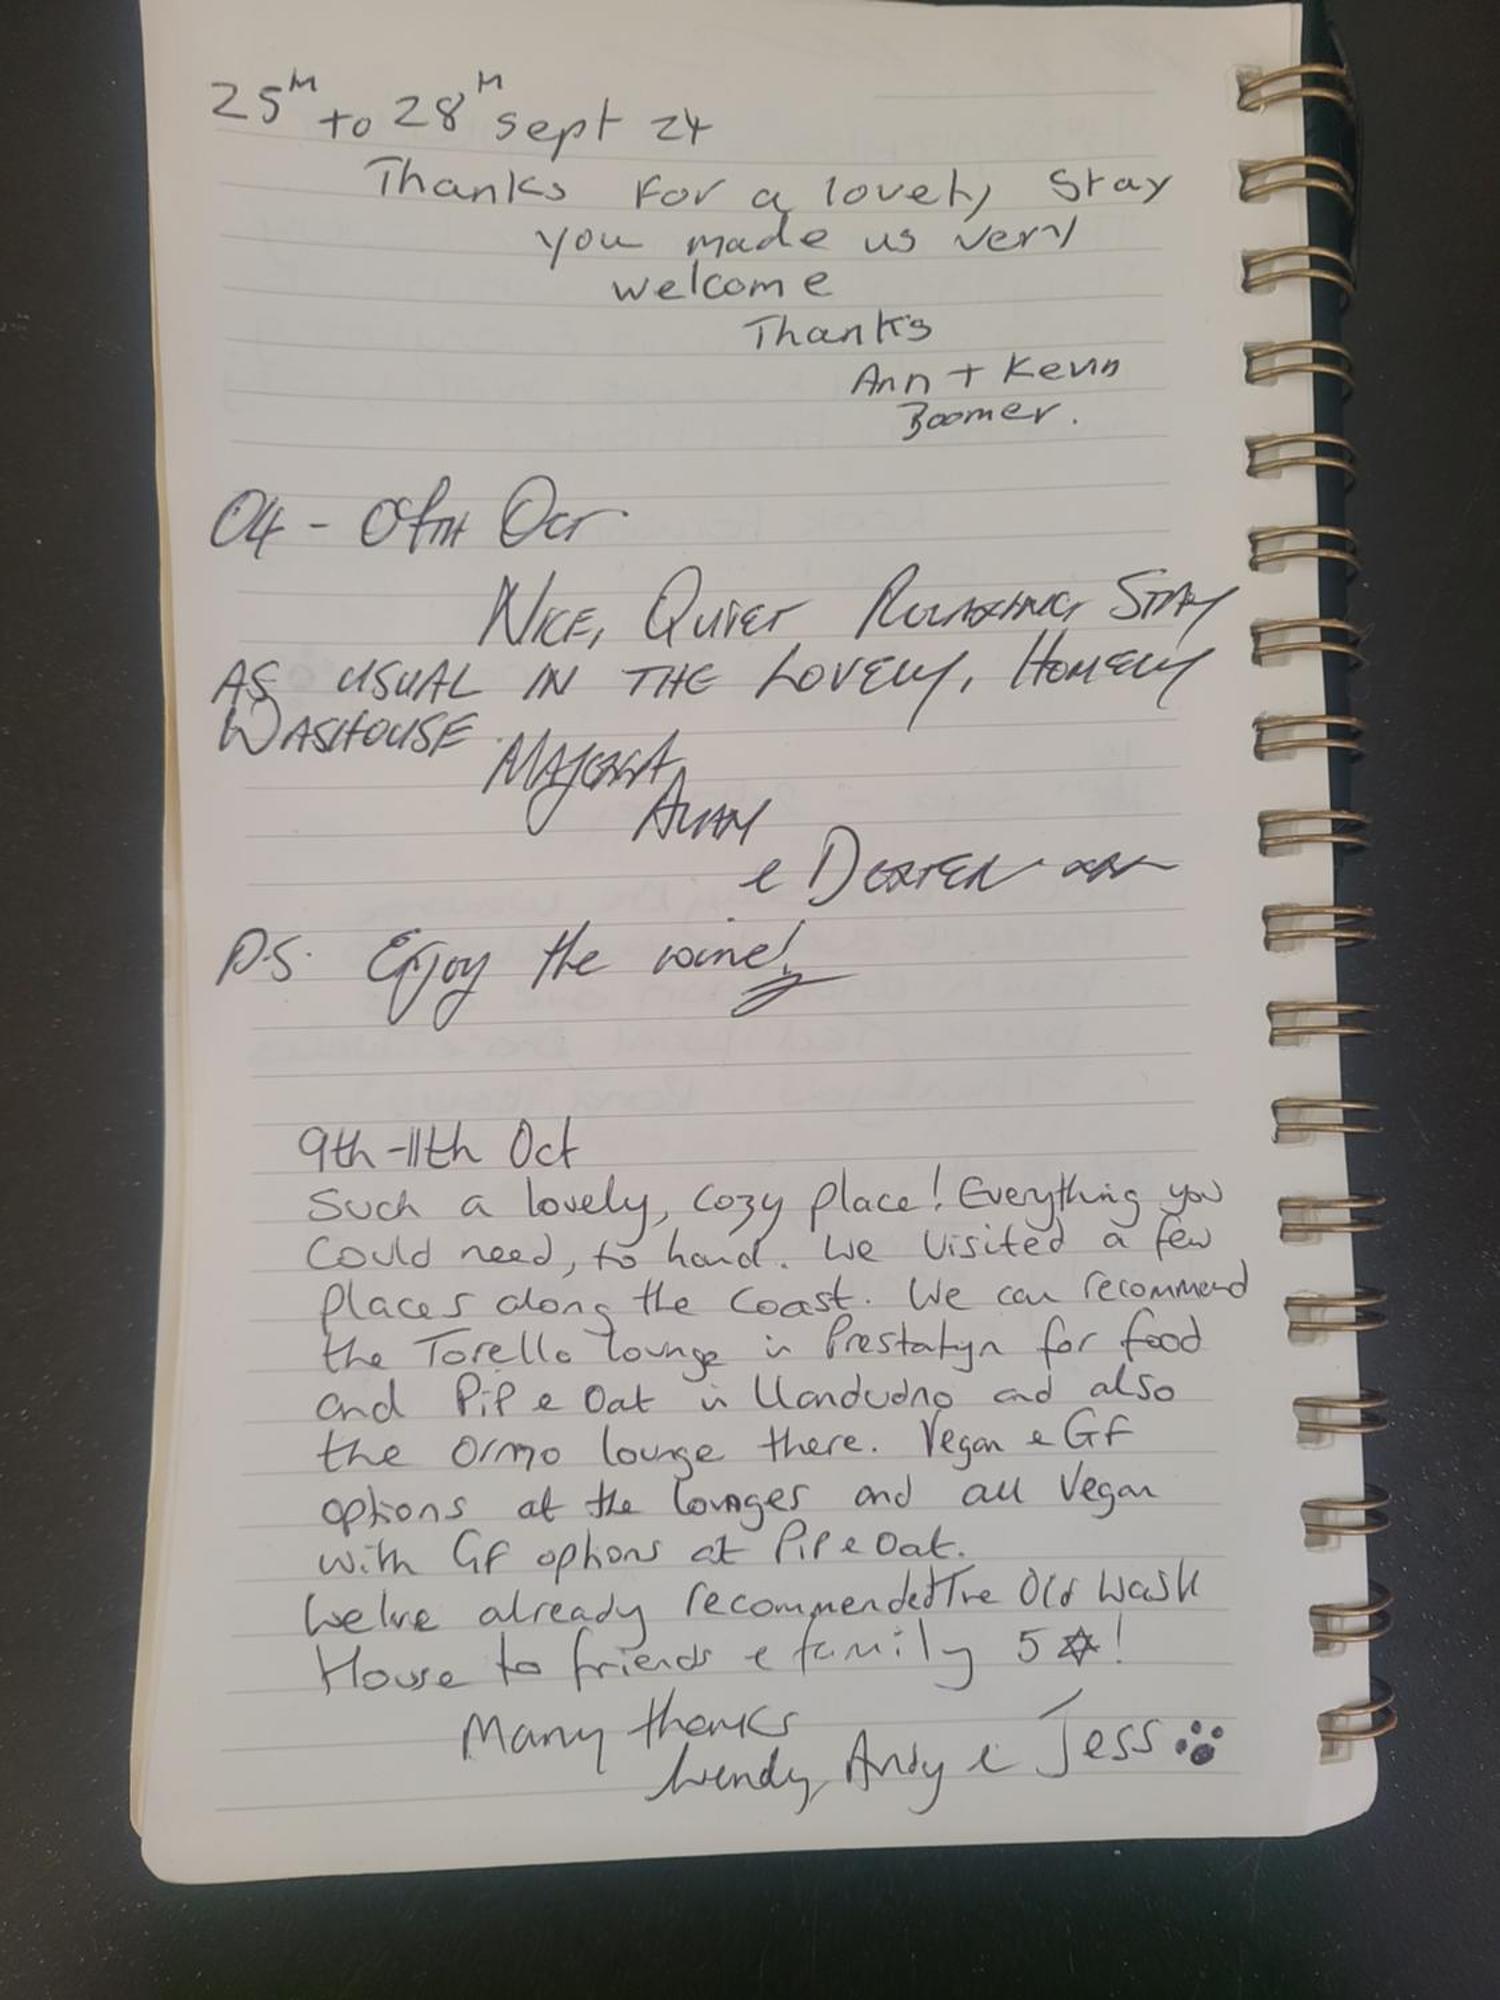 25th to 28th Sept 24
Thanks for a lovely stay
you made us very
welcome
Thanks
Ann + Kevin
Boomer.
04 - 08TH OCT
NICE, QUIET RELAXING STAY
AS USUAL IN THE LOVELY, HOMELY
WASHOUSE.
ALLAN
& DEXTER
P.S. Enjoy the wine!
9th-11th Oct
Such a lovely, cozy place! Everything you
could need, to hand. We visited a few
places along the coast. We can recommend
the Torello lounge in Prestatyn for food
and Pip & Oat in Llandudno and also
the Ormo lounge there. Vegan & GF
options at the lounges and all vegan
with GF options at Pip & Oat.
We've already recommended The Old Wash
House to friends & family 5☆!
Many thanks
Wendy, Andy & Jess